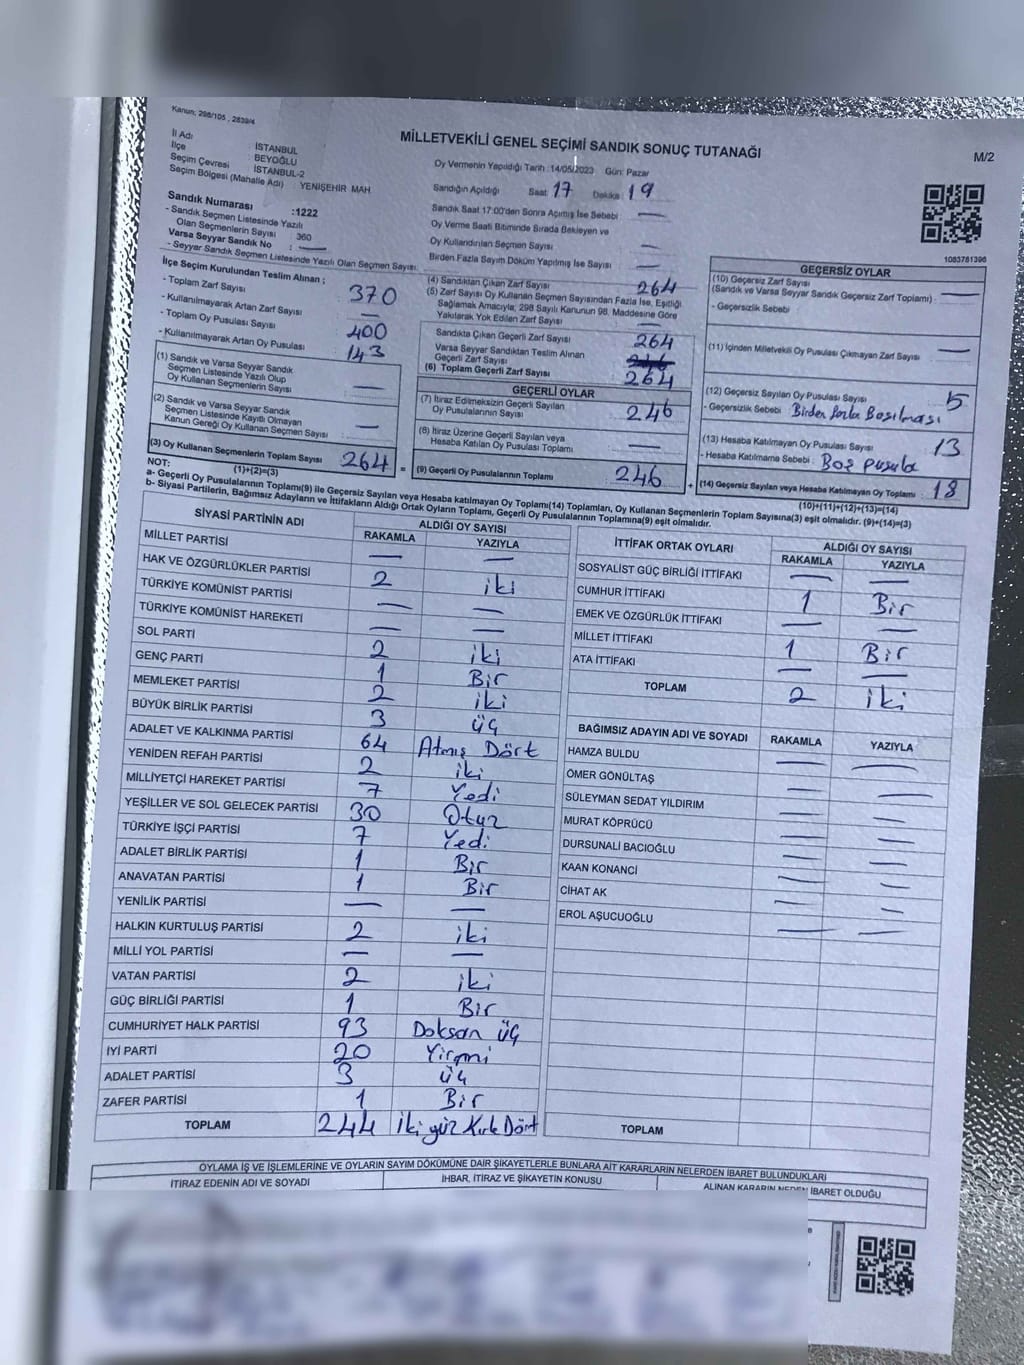 Kanun: 298/105 , 2839/4
MİLLETVEKİLİ GENEL SEÇİMİ SANDIK SONUÇ TUTANAĞI
M/2
İl Adı : İSTANBUL
İlçe : BEYOĞLU
Seçim Çevresi : İSTANBUL-2
Seçim Bölgesi (Mahalle Adı) : YENİŞEHİR MAH.
Sandık Numarası :1222
- Sandık Seçmen Listesinde Yazılı
Olan Seçmenlerin Sayısı : 360
Varsa Seyyar Sandık No : —
- Seyyar Sandık Seçmen Listesinde Yazılı Olan Seçmen Sayısı:
Oy Vermenin Yapıldığı Tarih :14/05/2023 Gün: Pazar
Sandığın Açıldığı Saat 17 Dakika 19
Sandık Saat 17:00'den Sonra Açımış İse Sebebi : —
Oy Verme Saati Bitiminde Sırada Bekleyen ve
Oy Kullandırılan Seçmen Sayısı : —
Birden Fazla Sayım Döküm Yapılmış İse Sayısı : —
1083781396
İlçe Seçim Kurulundan Teslim Alınan ;
- Toplam Zarf Sayısı : 370
- Kullanılmayarak Artan Zarf Sayısı : —
- Toplam Oy Pusulası Sayısı : 400
- Kullanılmayarak Artan Oy Pusulası : 143
(1) Sandık ve Varsa Seyyar Sandık
Seçmen Listesinde Yazılı Olup
Oy Kullanan Seçmenlerin Sayısı : —
(2) Sandık ve Varsa Seyyar Sandık
Seçmen Listesinde Kayıtlı Olmayan
Kanun Gereği Oy Kullanan Seçmen Sayısı : —
(3) Oy Kullanan Seçmenlerin Toplam Sayısı 264 =
(1)+(2)=(3)
(4) Sandıktan Çıkan Zarf Sayısı : 264
(5) Zarf Sayısı Oy Kullanan Seçmen Sayısından Fazla İse, Eşitliği
Sağlamak Amacıyla; 298 Sayılı Kanunun 98. Maddesine Göre
Yakılarak Yok Edilen Zarf Sayısı : —
Sandıkta Çıkan Geçerli Zarf Sayısı : 264
Varsa Seyyar Sandıktan Teslim Alınan
Geçerli Zarf Sayısı :
(6) Toplam Geçerli Zarf Sayısı : 264
GEÇERLİ OYLAR
(7) İtiraz Edilmeksizin Geçerli Sayılan
Oy Pusulalarının Sayısı : 246
(8) İtiraz Üzerine Geçerli Sayılan veya
Hesaba Katılan Oy Pusulası Toplamı : —
(9) Geçerli Oy Pusulalarının Toplamı : 246 +
GEÇERSİZ OYLAR
(10) Geçersiz Zarf Sayısı
(Sandık ve Varsa Seyyar Sandık Geçersiz Zarf Toplamı) : —
- Geçersizlik Sebebi
(11) İçinden Milletvekili Oy Pusulası Çıkmayan Zarf Sayısı : —
(12) Geçersiz Sayılan Oy Pusulası Sayısı : 5
- Geçersizlik Sebebi : Birden fazla Basılması
(13) Hesaba Katılmayan Oy Pusulası Sayısı : 13
- Hesaba Katılmama Sebebi : Boş pusula
(14) Geçersiz Sayılan veya Hesaba Katılmayan Oy Toplamı : 18
(10)+(11)+(12)+(13)=(14)
NOT:
a- Geçerli Oy Pusulalarının Toplamı(9) ile Geçersiz Sayılan veya Hesaba katılmayan Oy Toplamı(14) Toplamları, Oy Kullanan Seçmenlerin Toplam Sayısına(3) eşit olmalıdır. (9)+(14)=(3)
b- Siyasi Partilerin, Bağımsız Adayların ve İttifakların Aldığı Ortak Oyların Toplamı, Geçerli Oy Pusulalarının Toplamına(9) eşit olmalıdır.
SİYASİ PARTİNİN ADI ALDIĞI OY SAYISI
RAKAMLA YAZIYLA
MİLLET PARTİSİ — —
HAK VE ÖZGÜRLÜKLER PARTİSİ 2 iki
TÜRKİYE KOMÜNİST PARTİSİ — —
TÜRKİYE KOMÜNİST HAREKETİ — —
SOL PARTİ 2 iki
GENÇ PARTİ 1 Bir
MEMLEKET PARTİSİ 2 iki
BÜYÜK BİRLİK PARTİSİ 3 üç
ADALET VE KALKINMA PARTİSİ 64 Atmış Dört
YENİDEN REFAH PARTİSİ 2 iki
MİLLİYETÇİ HAREKET PARTİSİ 7 Yedi
YEŞİLLER VE SOL GELECEK PARTİSİ 30 Otuz
TÜRKİYE İŞÇİ PARTİSİ 7 Yedi
ADALET BİRLİK PARTİSİ 1 Bir
ANAVATAN PARTİSİ 1 Bir
YENİLİK PARTİSİ — —
HALKIN KURTULUŞ PARTİSİ 2 iki
MİLLİ YOL PARTİSİ — —
VATAN PARTİSİ 2 iki
GÜÇ BİRLİĞİ PARTİSİ 1 Bir
CUMHURİYET HALK PARTİSİ 93 Doksan üç
İYİ PARTİ 20 Yirmi
ADALET PARTİSİ 3 üç
ZAFER PARTİSİ 1 Bir
TOPLAM 244 İki yüz Kırk Dört
İTTİFAK ORTAK OYLARI ALDIĞI OY SAYISI
RAKAMLA YAZIYLA
SOSYALİST GÜÇ BİRLİĞİ İTTİFAKI — —
CUMHUR İTTİFAKI 1 Bir
EMEK VE ÖZGÜRLÜK İTTİFAKI — —
MİLLET İTTİFAKI 1 Bir
ATA İTTİFAKI — —
TOPLAM 2 iki
BAĞIMSIZ ADAYIN ADI VE SOYADI RAKAMLA YAZIYLA
HAMZA BULDU — —
ÖMER GÖNÜLTAŞ — —
SÜLEYMAN SEDAT YILDIRIM — —
MURAT KÖPRÜCÜ — —
DURSUNALİ BACIOĞLU — —
KAAN KONANCİ — —
CİHAT AK — —
EROL AŞUCUOĞLU — —
TOPLAM
OYLAMA İŞ VE İŞLEMLERİNE VE OYLARIN SAYIM DÖKÜMÜNE DAİR ŞİKAYETLERLE BUNLARA AİT KARARLARIN NELERDEN İBARET BULUNDUKLARI
İTİRAZ EDENİN ADI VE SOYADI İHBAR, İTİRAZ VE ŞİKAYETİN KONUSU ALINAN KARARIN NEDEN İBARET OLDUĞU